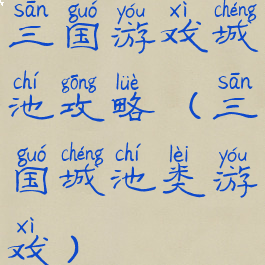 sān guó yóu xì chéng
三国游戏城
chí gōng lüè sān
池攻略（三
guó chéng chí lèi yóu
国城池类游
xì
戏）